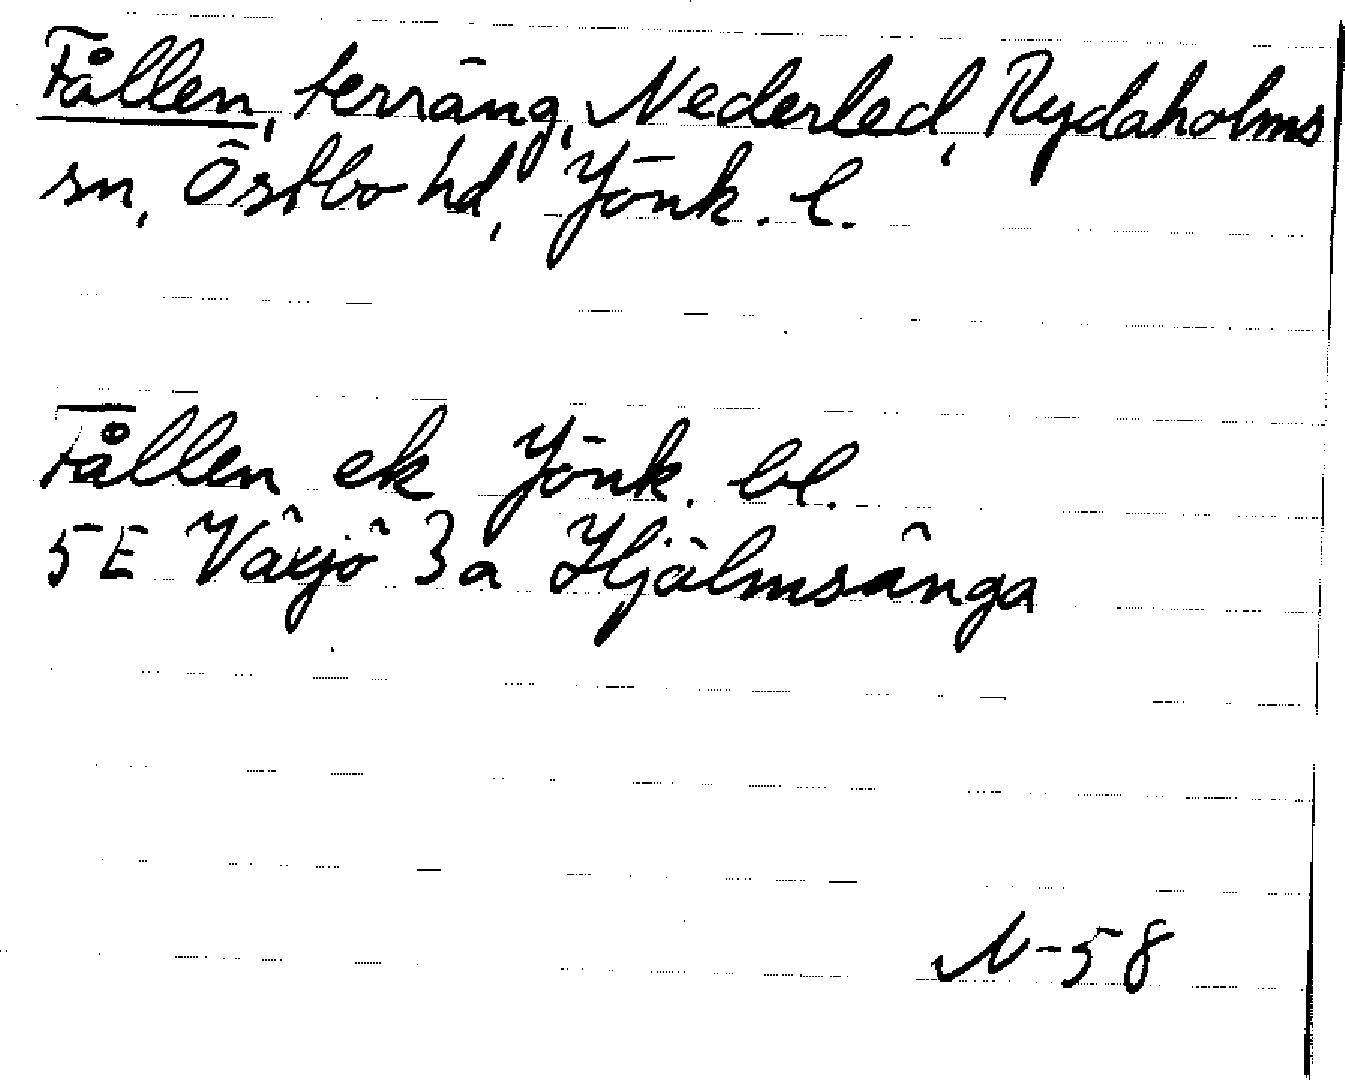 Fållen, terräng, Nederled, Rydaholms
sn, Östbo hd, Jönk. l.
Fållen ek Jönk. bl.
5E Växjö 3a Hjälmsänga
N-58